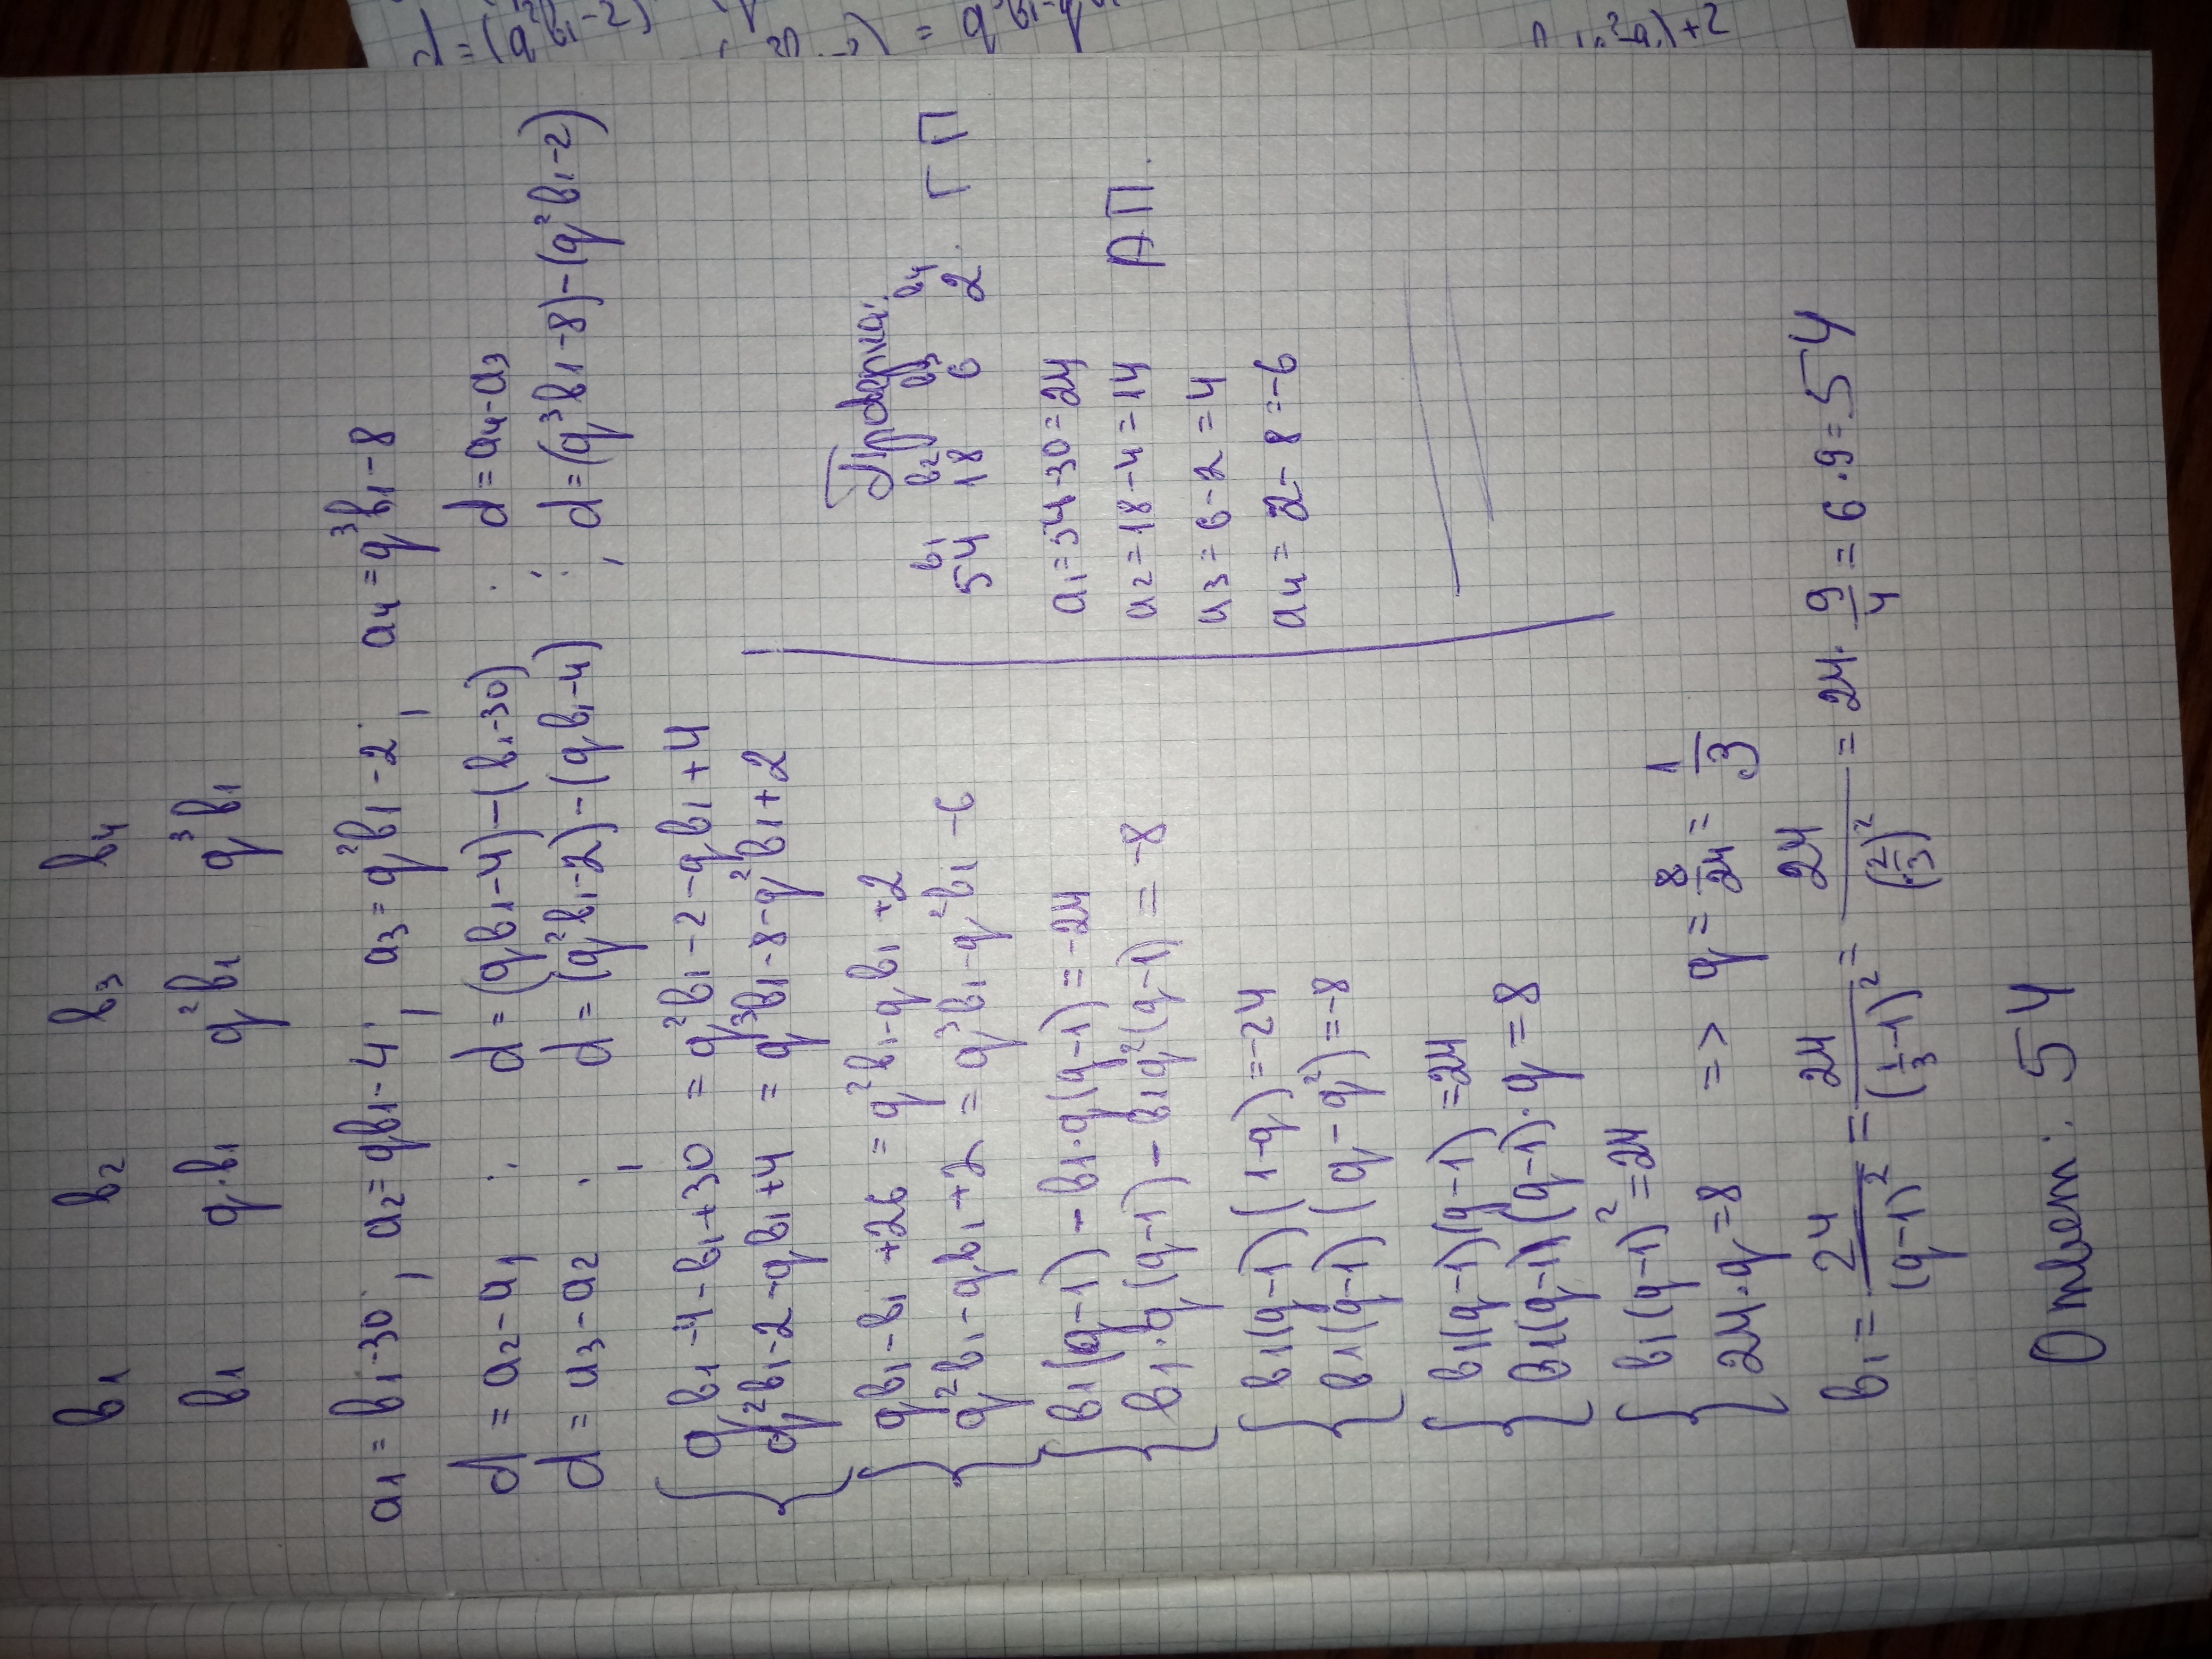 d=(q²b₁-2)
b₁ b₂ b₃ b₄
b₁ q·b₁ q²b₁ q³b₁
a₁=b₁-30; a₂=qb₁-4; a₃=q²b₁-2; a₄=q³b₁-8
d=a₂-a₁; d=(qb₁-4)-(b₁-30); d=a₄-a₃
d=a₃-a₂; d=(q²b₁-2)-(qb₁-4); d=(q³b₁-8)-(q²b₁-2)
{ qb₁-4-b₁+30 = q²b₁-2-qb₁+4
q²b₁-2-qb₁+4 = q³b₁-8-q²b₁+2
{ qb₁-b₁+26=q²b₁-qb₁+2
q²b₁-qb₁+2=q³b₁-q²b₁-6
{ b₁(q-1)-b₁·q(q-1)=-24
b₁·q(q-1)-b₁q²(q-1)=-8
{ b₁(q-1)(1-q)=-24
b₁(q-1)(q-q²)=-8
{ b₁(q-1)(q-1)=24
b₁(q-1)(q-1)·q=8
{ b₁(q-1)²=24
24·q=8 => q=8/24=1/3
b₁=24/(q-1)²=24/(1/3-1)²=24/(2/3)²=24·9/4=6·9=54
Ответ: 54
Проверка:
b₁ b₂ b₃ b₄
54 18 6 2. ГП
a₁=54-30=24
a₂=18-4=14 АП.
a₃=6-2=4
a₄=2-8=-6